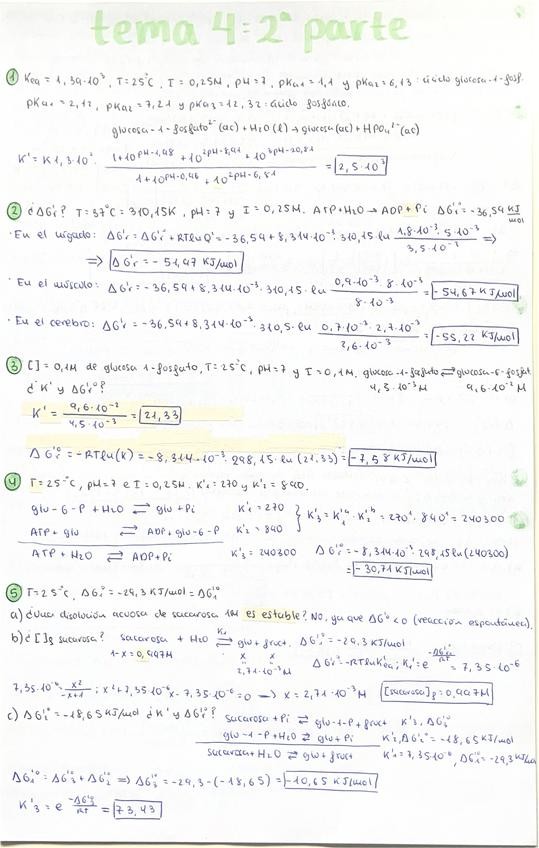 tema 4: 2ª parte
① Kea = 1,39·10³, T=25°C, I = 0,25M, pH=7, pKa1=1,1 y pKa2=6,13: ácido glucosa-1-fosf.
pKa1=2,12, pKa2=7,21 y pKa3=12,32: ácido fosfónico.
glucosa-1-fosfato²⁻(ac) + H2O(l) → glucosa(ac) + HPO4²⁻(ac)
K' = K 1,3·10². (1+10^(pH-1,98) + 10^(2pH-8,91) + 10^(3pH-20,81)) / (1+10^(pH-0,46) + 10^(2pH-6,81)) = 2,5·10³
② ¿ΔG'r? T=37°C = 310,15K, pH=7 y I = 0,25M. ATP+H2O → ADP+Pi ΔG'r° = -36,54 KJ/mol
· En el hígado: ΔG'r = ΔG'r° + RTlnQ' = -36,54 + 8,314·10⁻³·310,15·ln (1,8·10⁻³·5·10⁻³)/(3,5·10⁻³) ⟹
⟹ ΔG'r = -51,47 KJ/mol
· En el músculo: ΔG'r = -36,54 + 8,314·10⁻³·310,15·ln (0,9·10⁻³·8·10⁻³)/(8·10⁻³) = -54,67 KJ/mol
· En el cerebro: ΔG'r = -36,54 + 8,314·10⁻³·310,5·ln (0,7·10⁻³·2,7·10⁻³)/(2,6·10⁻³) = -55,22 KJ/mol
③ [] = 0,1M de glucosa 1-fosfato, T=25°C, pH=7 y I=0,1M. glucosa-1-fosfato ⇌ glucosa-6-fosfat
¿K' y ΔG'r°? 4,5·10⁻³M 9,6·10⁻²M
K' = 9,6·10⁻²/4,5·10⁻³ = 21,33
ΔG'r° = -RTln(K) = -8,314·10⁻³·298,15·ln(21,33) = -7,58 KJ/mol
④ T=25°C, pH=7 e I=0,25M. K'1=270 y K'2=840.
glu-6-P + H2O ⇌ glu+Pi K'1=270
ATP + glu ⇌ ADP+glu-6-P K'2=840 } K'3=K'1ᵃ·K'2ᵇ = 270¹·840¹ = 240300
ATP + H2O ⇌ ADP+Pi K'3=240300 ΔG'r° = -8,314·10⁻³·298,15 ln(240300)
= -30,71 KJ/mol
⑤ T=25°C, ΔG'r° = -29,3 KJ/mol = ΔG'1°
a) ¿Una disolución acuosa de sacarosa 1M es estable? NO, ya que ΔG'°<0 (reacción espontánea).
b) ¿[]g sacarosa? sacarosa + H2O ⇌ glu+fruct. ΔG'1° = -29,3 KJ/mol
1-x=0,997M x x
2,71·10⁻³M ΔG'r° = -RTlnKea; K'1 = e^(-ΔG'1°/RT) = 7,35·10⁻⁶
7,35·10⁻⁶ = x²/x+1; x²+7,35·10⁻⁶x - 7,35·10⁻⁶=0 → x = 2,71·10⁻³M [sacarosa]g = 0,997M
c) ΔG'2° = -18,65 KJ/mol ¿K' y ΔG'r°? sacarosa + Pi ⇌ glu-1-P+fruct K'3, ΔG'3°
glu-1-P+H2O ⇌ glu+Pi K'2, ΔG'2° = -18,65 KJ/mol
sacarosa+H2O ⇌ glu+fruct K'1=7,35·10⁻⁶, ΔG'1° = -29,3KJ/m
ΔG'1° = ΔG'3° + ΔG'2° ⟹ ΔG'3° = -29,3-(-18,65) = -10,65 KJ/mol
K'3 = e^(-ΔG'3°/RT) = 73,43